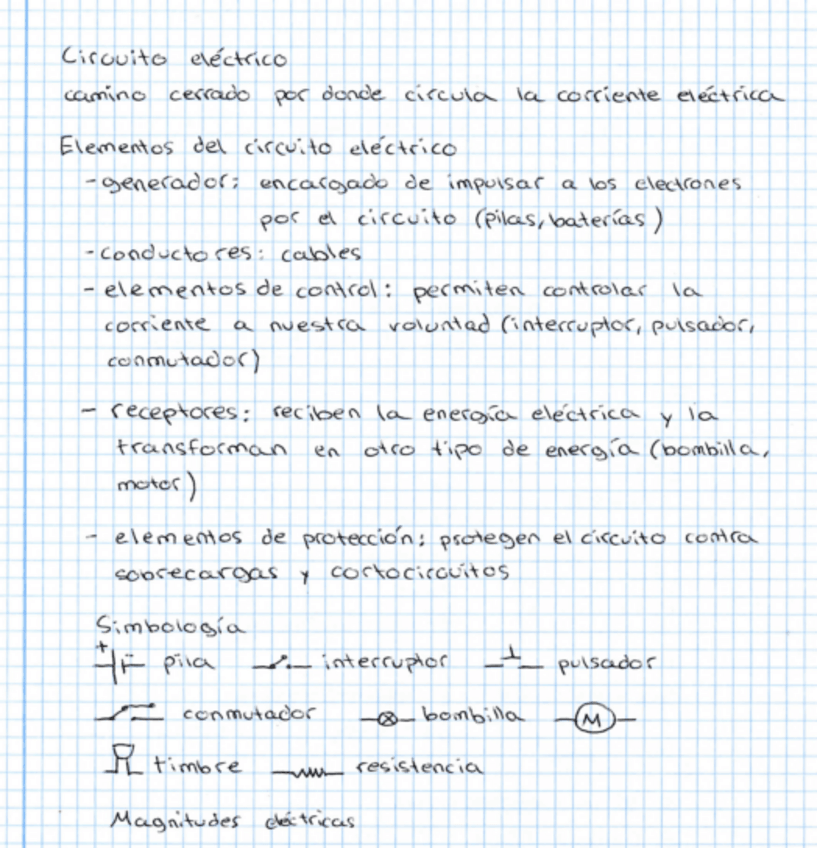 Circuito eléctrico
camino cerrado por donde circula la corriente eléctrica
Elementos del circuito eléctrico
-generador: encargado de impulsar a los electrones
por el circuito (pilas, baterías)
-conductores: cables
- elementos de control: permiten controlar la
corriente a nuestra voluntad (interruptor, pulsador,
conmutador)
- receptores: reciben la energía eléctrica y la
transforman en otro tipo de energía (bombilla,
motor)
- elementos de protección: protegen el circuito contra
sobrecargas y cortocircuitos
Simbología
+ - pila interruptor pulsador
conmutador bombilla M
timbre resistencia
Magnitudes eléctricas